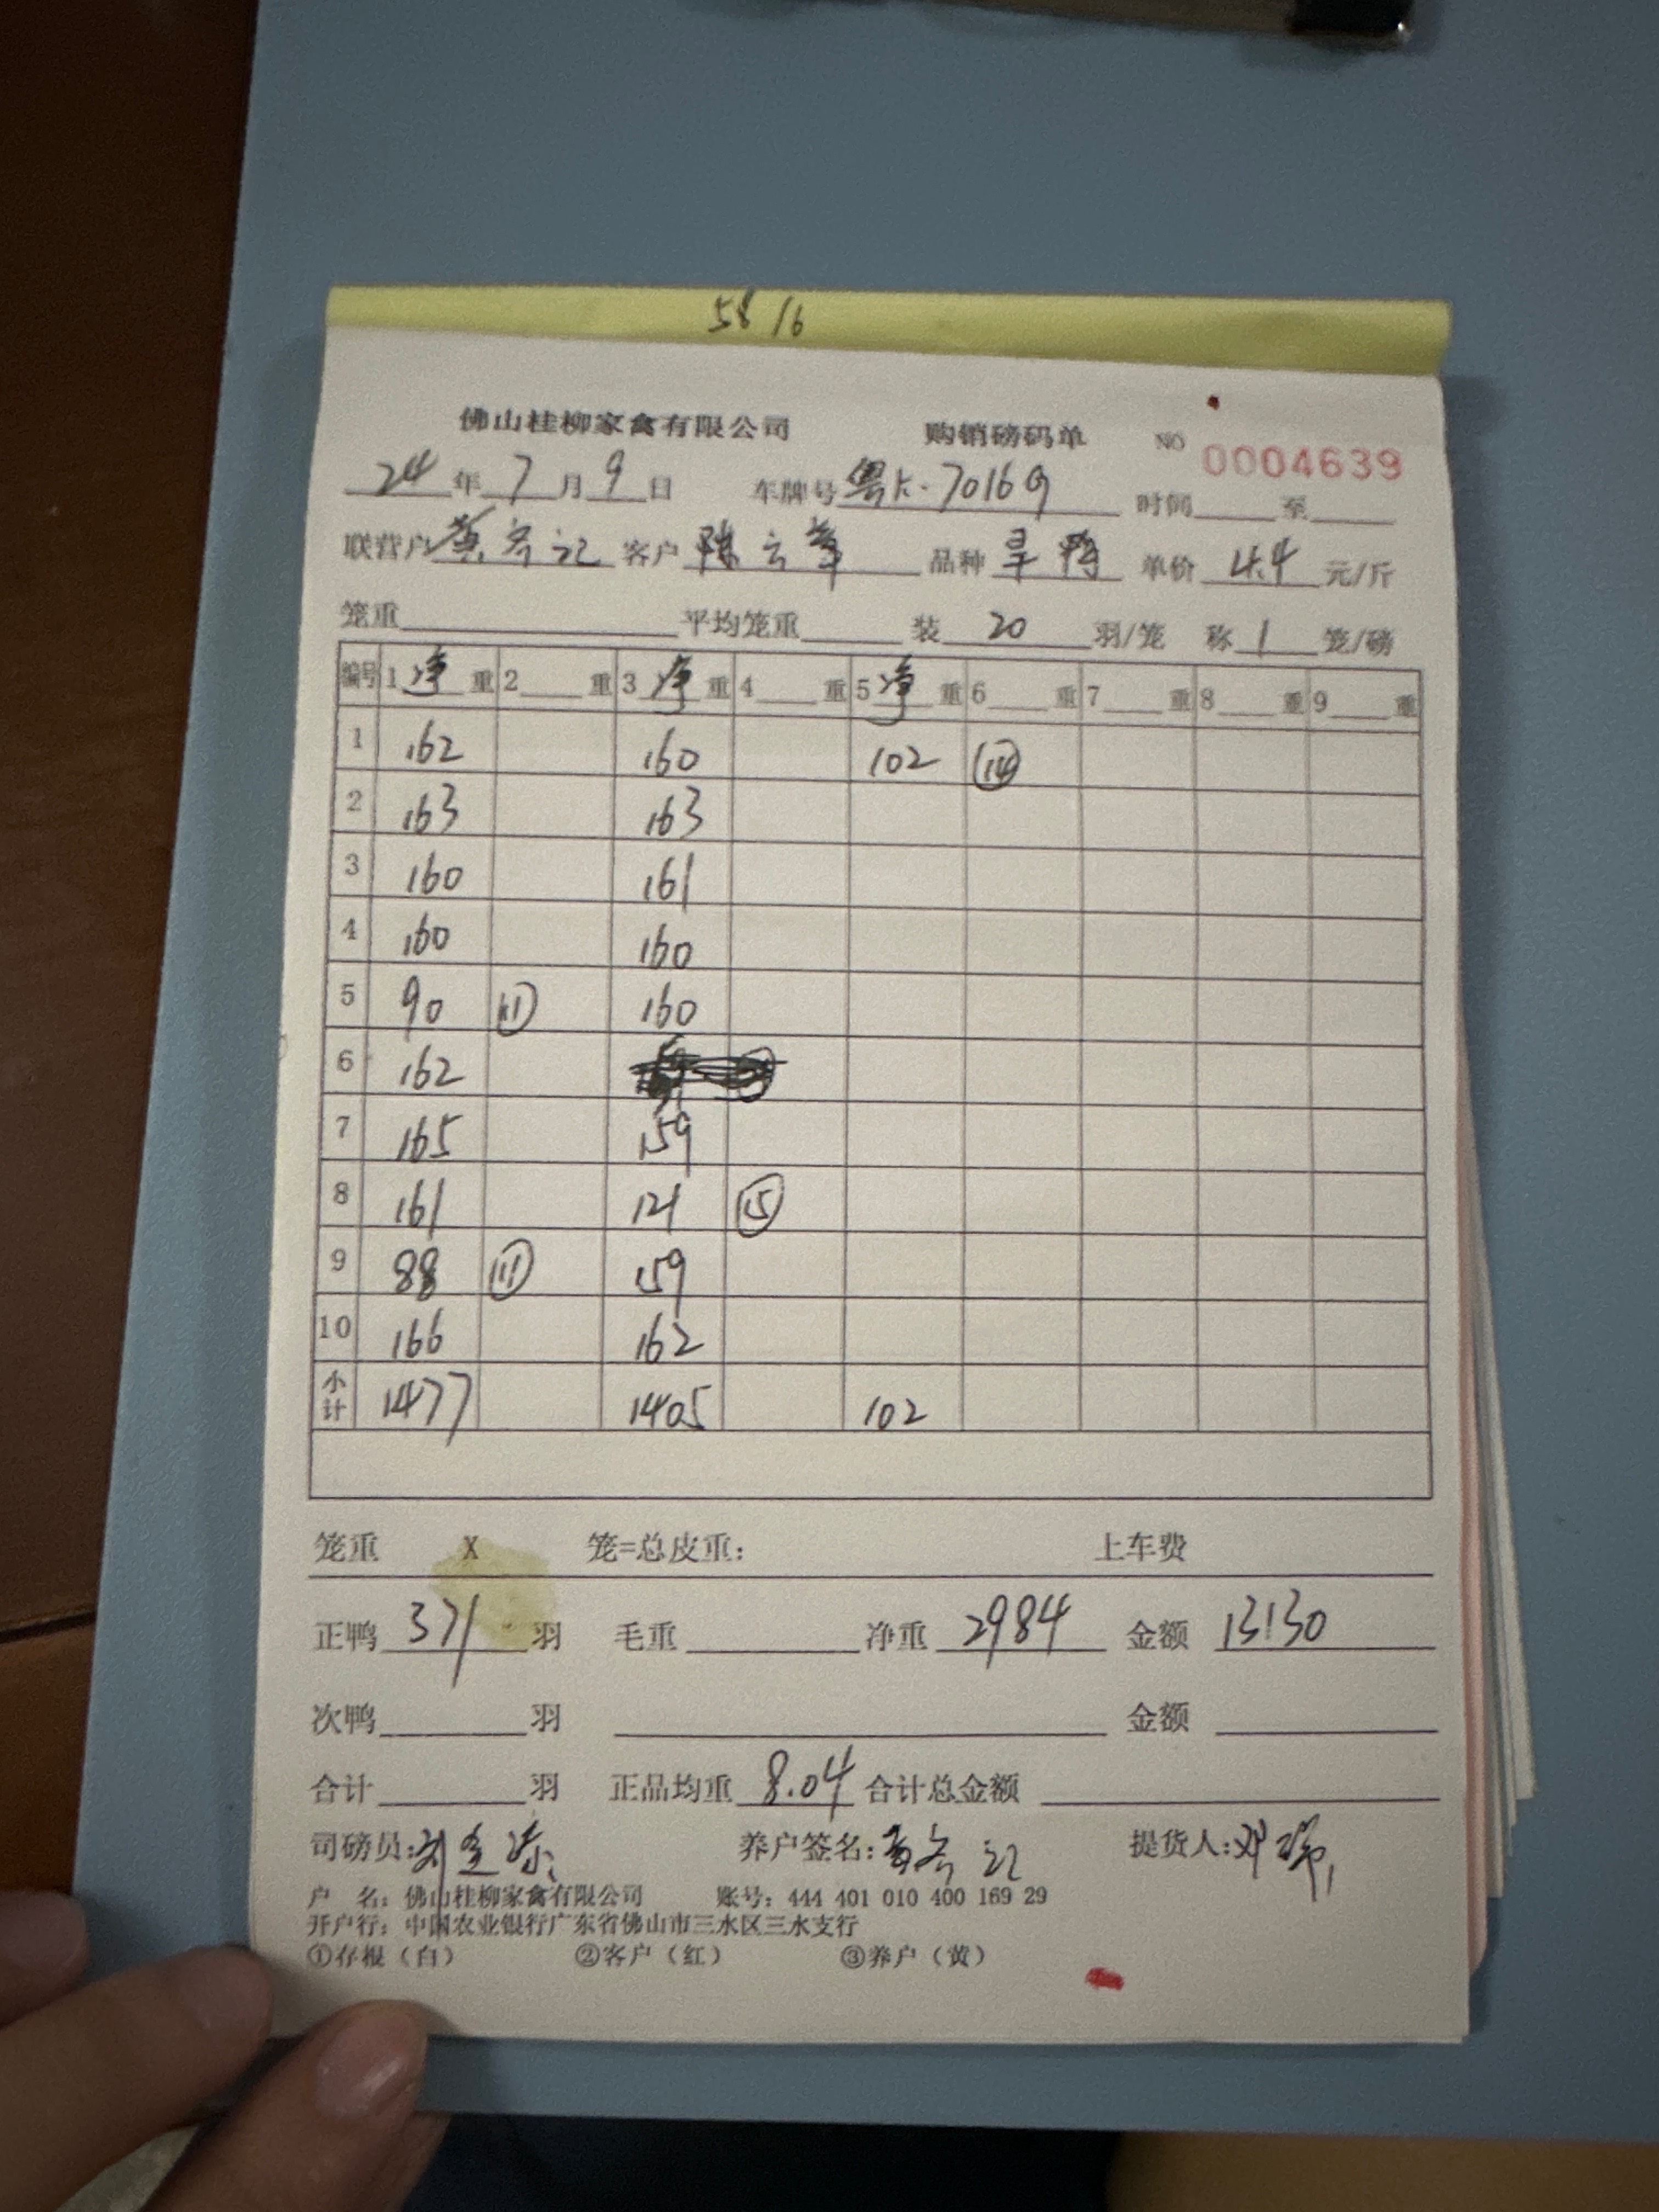 58 16
佛山桂柳家禽有限公司 购销磅码单 NO 0004639
24年7月9日 车牌号 粤 7016 时间 至
联营户 记 客户 陈云 品种 旱鸭 单价 4.4 元/斤
笼重 平均笼重 装 20 羽/笼 称 1 笼/磅
编号 1 净 重 2 重 3 净 重 4 重 5 净 重 6 重 7 重 8 重 9 重
1 162 160 102 ⑭
2 163 163
3 160 161
4 160 160
5 90 ⑪ 160
6 162
7 165 159
8 161 121 ⑮
9 88 ⑪ 159
10 166 162
小计 1477 1405 102
笼重 X 笼=总皮重: 上车费
正鸭 371 羽 毛重 净重 2984 金额 13130
次鸭 羽 金额
合计 羽 正品均重 8.04 合计总金额
司磅员: 刘 养户签名: 记 提货人: 邓
户 名: 佛山桂柳家禽有限公司 账号: 444 401 010 400 169 29
开户行: 中国农业银行广东省佛山市三水区三水支行
①存根（白） ②客户（红） ③养户（黄）